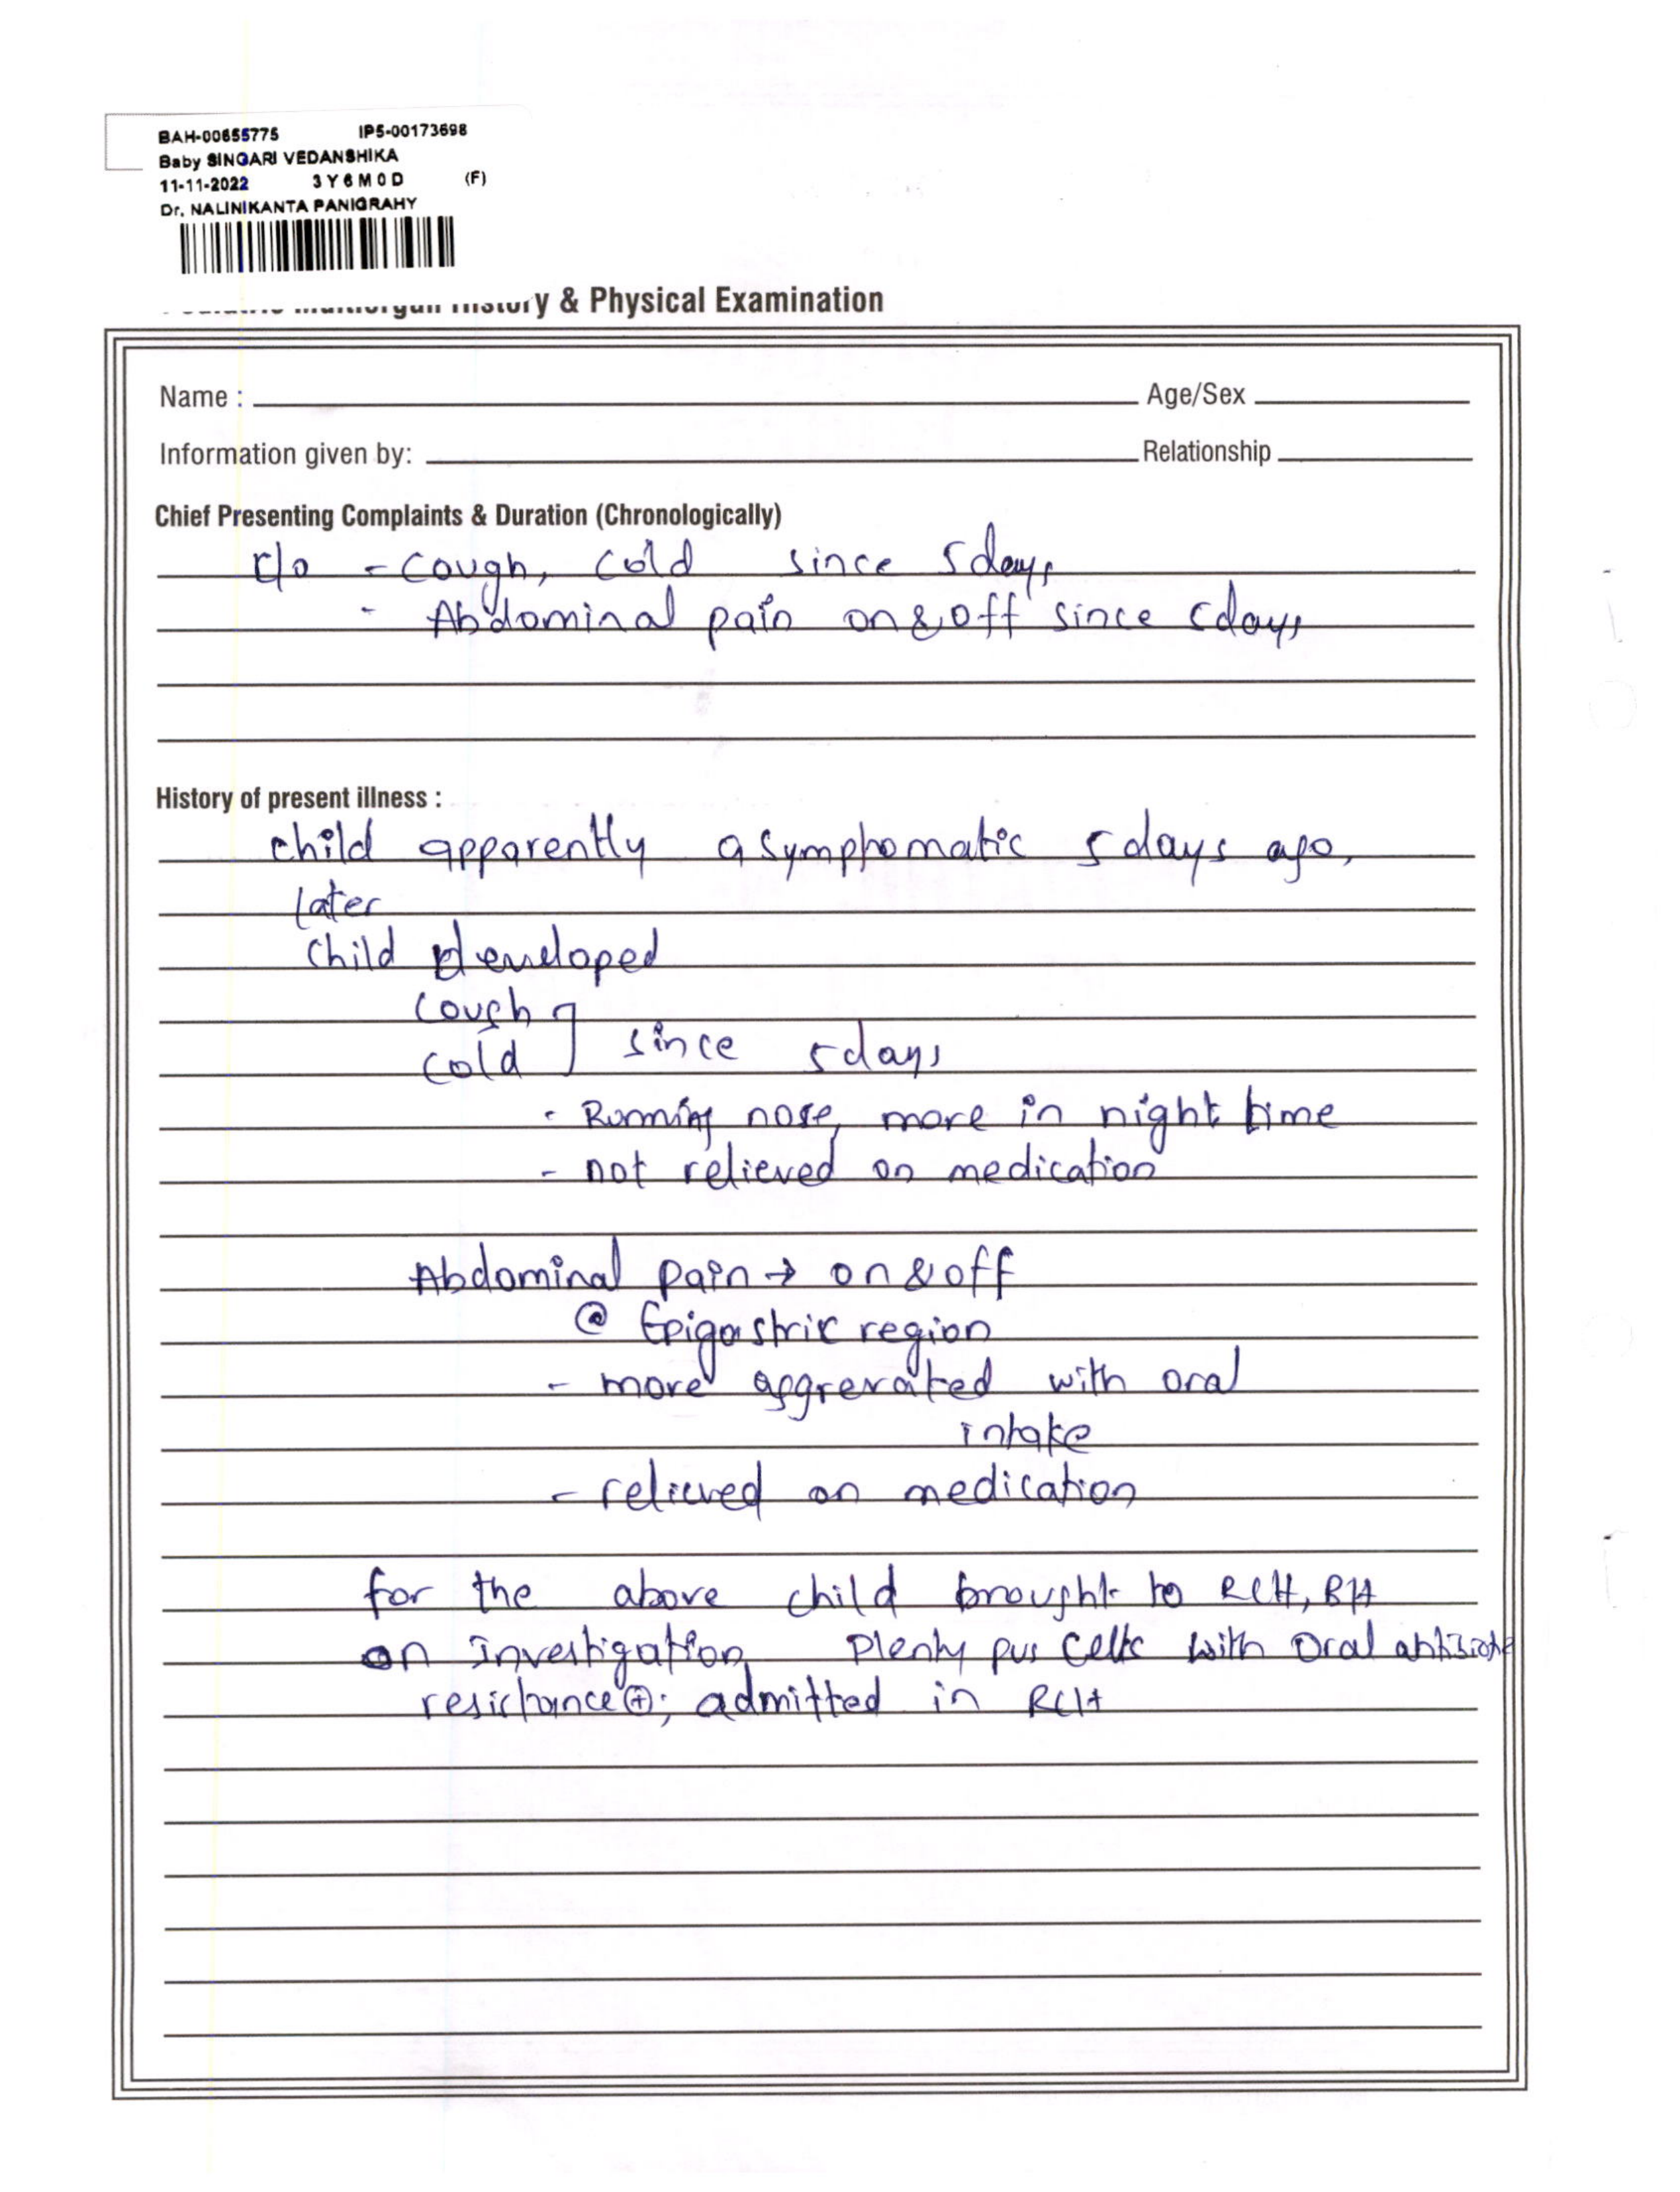 BAH-00655775 IP5-00173698
Baby SINGARI VEDANSHIKA
11-11-2022 3 Y 6 M 0 D (F)
Dr. NALINIKANTA PANIGRAHY
History & Physical Examination
Name : Age/Sex
Information given by: Relationship
Chief Presenting Complaints & Duration (Chronologically)
c/o - cough, cold since 5days
- Abdominal pain on & off since 5days
History of present illness :
child apparently asymptomatic 5 days ago,
later
child developed
cough
cold ] since 5days
- Running nose, more in night time
- not relieved on medication
Abdominal pain → on & off
@ Epigastric region
- more aggrevated with oral
intake
- relieved on medication
for the above child brought to RCH, BH
on investigation plenty pus cells with oral antibiotic
resistance ⊕; admitted in RCH